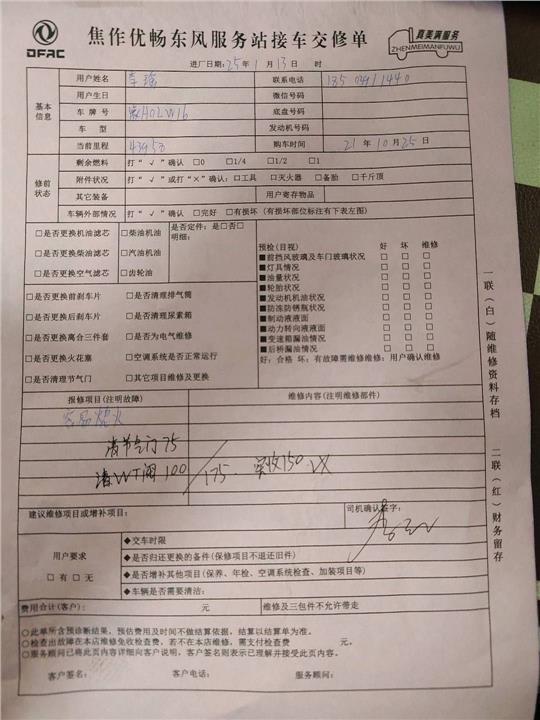 DFAC
焦作优畅东风服务站接车交修单
真美满服务
ZHENMEIMANFUWU
进厂日期:25年1月13日 时
基本信息
用户姓名 联系电话
用户生日 微信号码
车牌号 H02W16 底盘号码
车型 发动机号码
当前里程 43953 购车时间 21年10月25日
修前状态
剩余燃料 打“√”确认 □0 □1/4 □1/2 □1
附件状况 打“√”或打“×”确认:□工具 □灭火器 □备胎 □千斤顶
其它装备 用户寄存物品
车辆外部情况 打“√”确认 □完好 □有损坏(有损坏部位标注有下表左图)
□是否更换机油滤芯 □柴油机油
□是否更换柴油滤芯 □汽油机油
□是否更换空气滤芯 □齿轮油
是否定件:是□否□
明细:
□是否更换前刹车片 □是否清理排气筒
□是否更换后刹车片 □是否清理尿素箱
□是否更换离合三件套 □是否为电气维修
□是否更换火花塞 □空调系统是否正常运行
□是否清理节气门 □其它项目维修及更换
预检(目视) 好 坏 维修
■前挡风玻璃及车门玻璃状况 □ □ □
■灯具情况 □ □ □
■油量状况 □ □ □
■轮胎状况 □ □ □
■发动机机油状况 □ □ □
■防冻防锈瓶状况 □ □ □
■制动液液面 □ □ □
■动力转向液液面 □ □ □
■变速箱漏油情况 □ □ □
■后桥漏油情况 □ □ □
好:合格 坏:有故障需维修维修:用户确认维修
报修项目(注明故障) 维修内容(注明维修部件)
熄火
清节气门 75
清VVT阀 100 / 175 实收150
建议维修项目或增补项目:
司机确认签字:
用户要求
□有 □无
◆交车时限
◆是否归还更换的备件(保修项目不退还旧件)
◆是否增补其他项目(保养、年检、空调系统检查、加装项目等)
◆车辆是否需要清洁:
费用合计(客户): 元 维修及三包件不允许带走
○此单所含预诊断结果,预估费用及时间不做结算依据,结算以结算单为准。
○检查出故障在本店维修免收检查费,若不在本店维修,需支付检查费 元。
○服务顾问已将此页内容详细向客户说明,客户签名则表示已理解并接受此页内容。
客户签名: 客户电话: 服务顾问:
一联(白)随维修资料存档
二联(红)财务留存